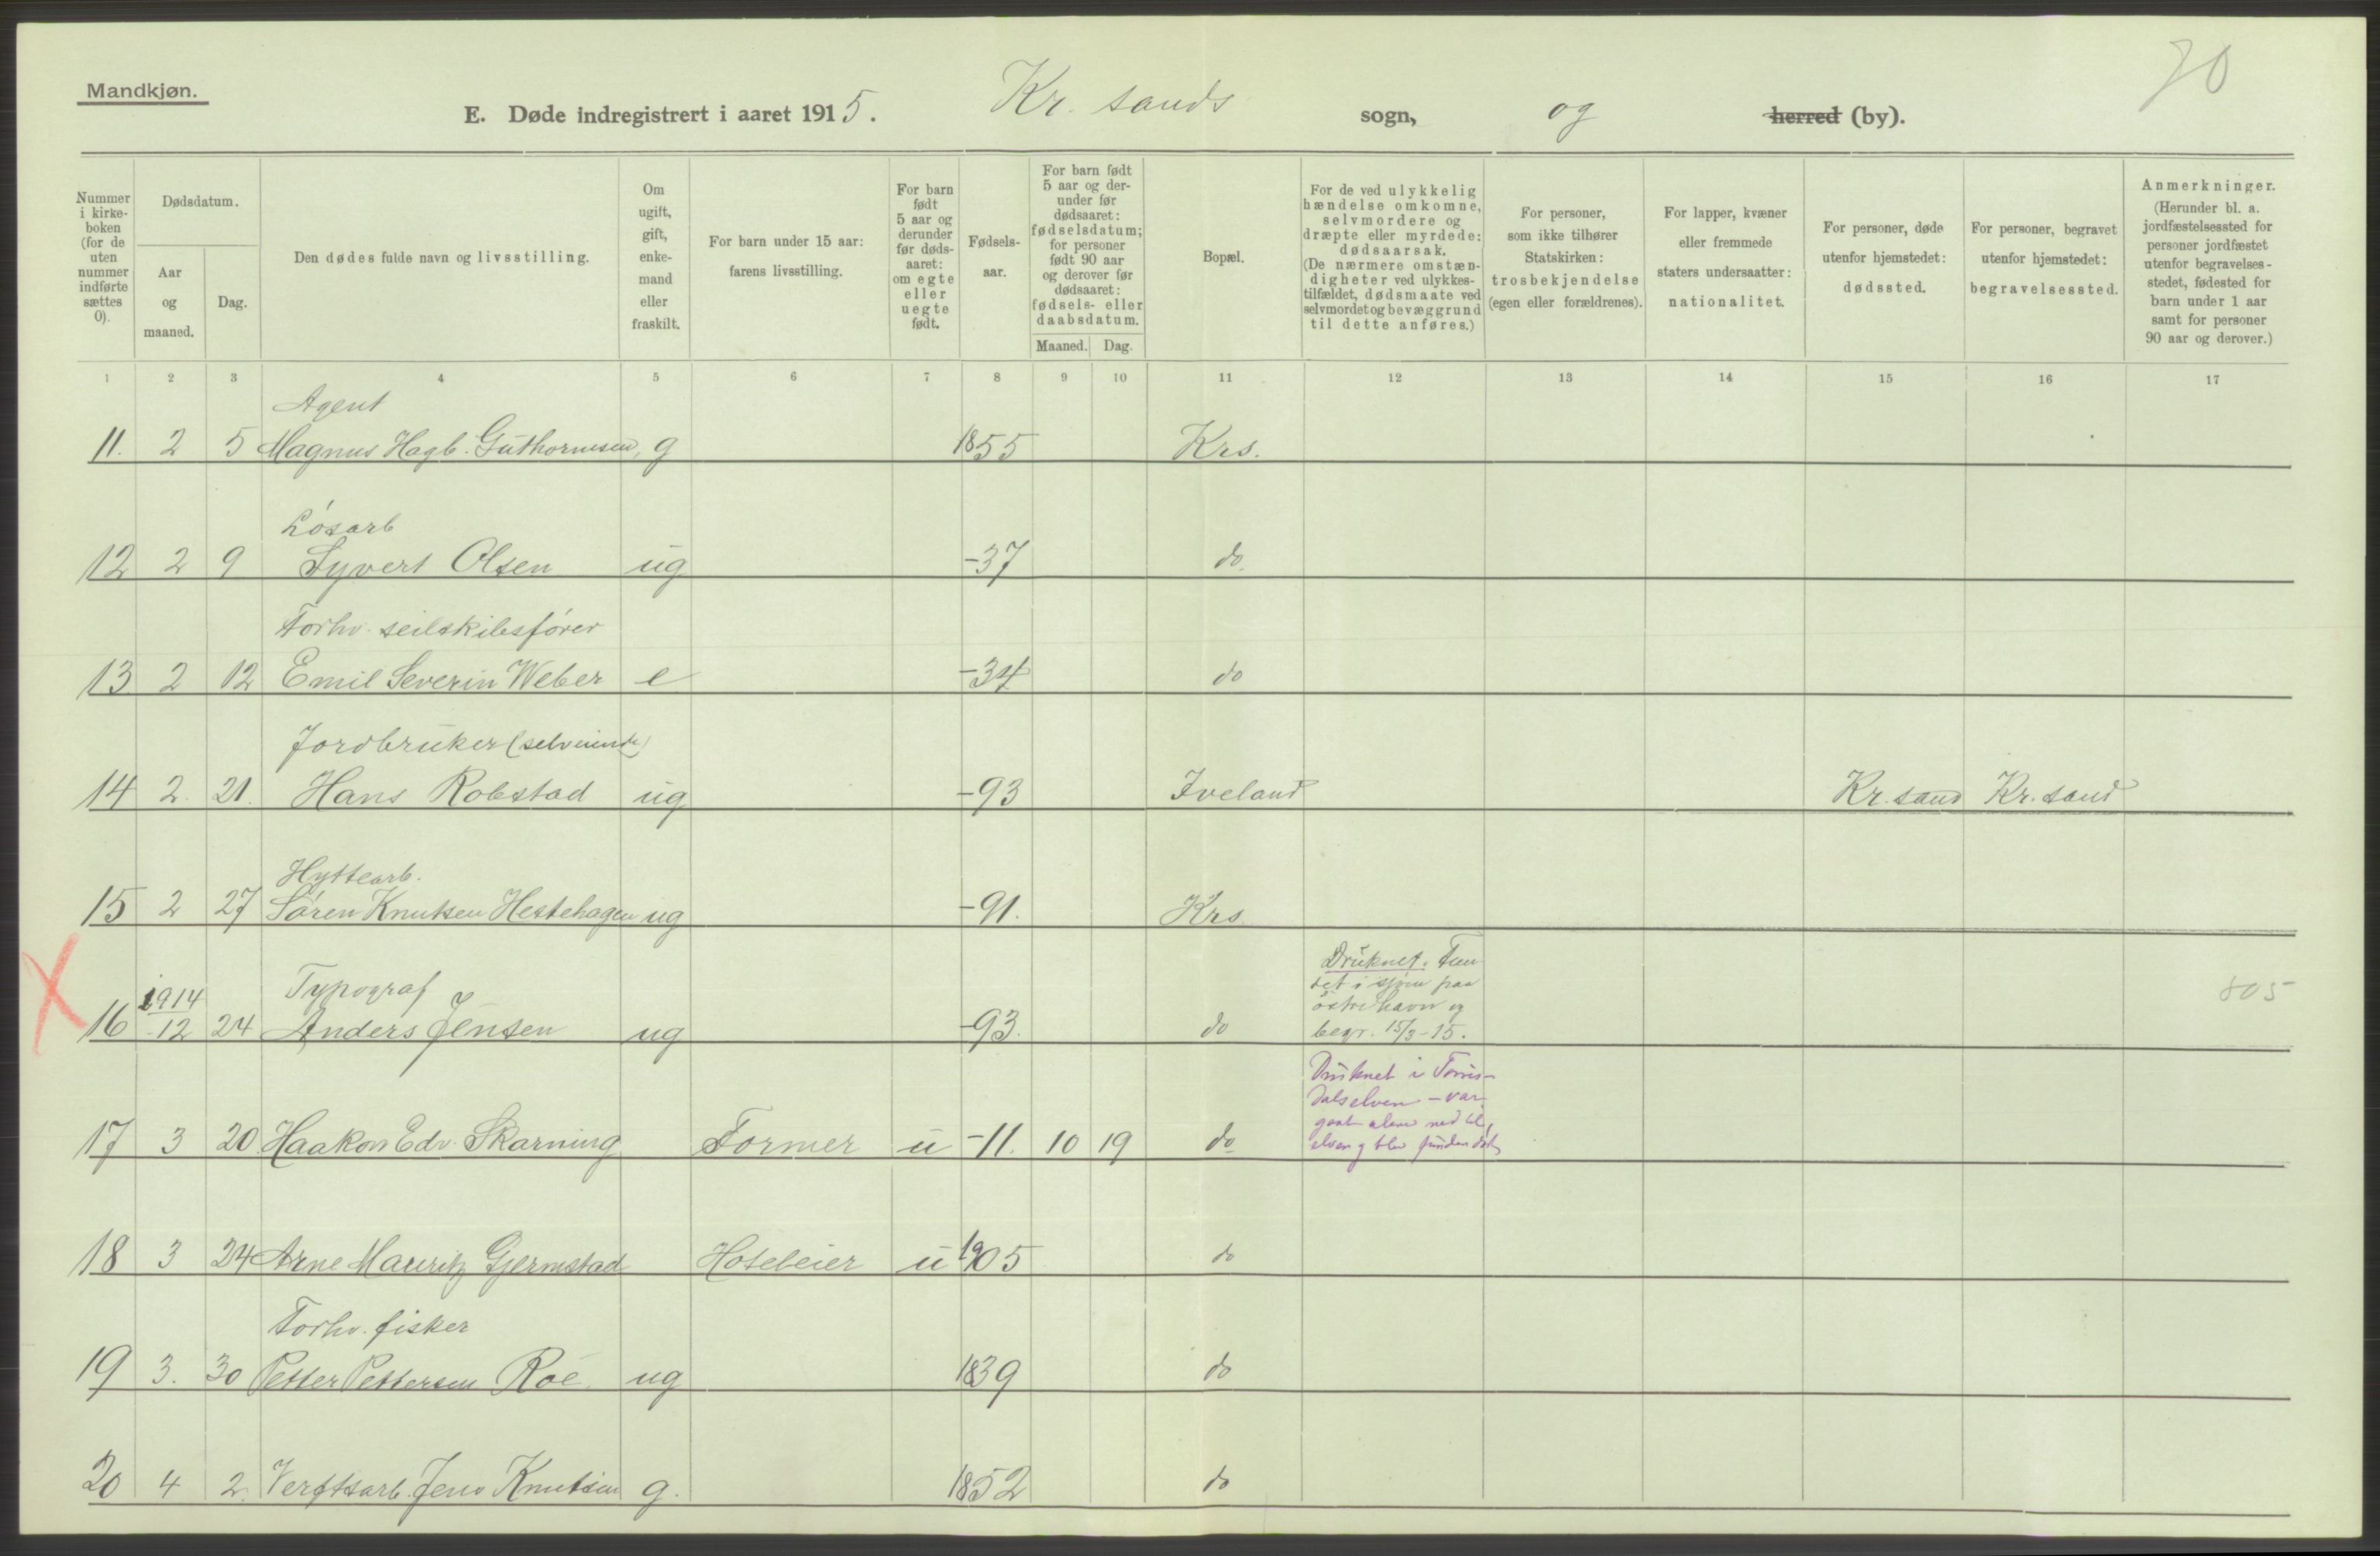 Mandkjøn.
70
E. Døde indregistrert i aaret 1915. Kr. sands sogn, og herred (by).
Nummer i kirke-boken (for de uten nummer indførte sættes 0).
Dødsdatum.
Aar og maaned.
Dag.
Den dødes fulde navn og livsstilling.
Om ugift, gift, enke-mand eller fraskilt.
For barn under 15 aar: farens livsstilling.
For barn født 5 aar og derunder før døds-aaret: om egte eller uegte født.
Fødsels-aar.
For barn født 5 aar og der-under før dødsaaret: fødselsdatum; for personer født 90 aar og derover før dødsaaret: fødsels- eller daabsdatum.
Maaned. Dag.
Bopæl.
For de ved ulykkelig hændelse omkomne, selvmordere og dræpte eller myrdede: dødsaarsak. (De nærmere omstæn-digheter ved ulykkes-tilfældet, dødsmaate ved selvmordet og bevæggrund til dette anføres.)
For personer, som ikke tilhører Statskirken: trosbekjendelse (egen eller forældrenes).
For lapper, kvæner eller fremmede staters undersaatter: nationalitet.
For personer, døde utenfor hjemstedet: dødssted.
For personer, begravet utenfor hjemstedet: begravelsessted.
Anmerkninger. (Herunder bl. a. jordfæstelsessted for personer jordfæstet utenfor begravelses-stedet, fødested for barn under 1 aar samt for personer 90 aar og derover.)
1 2 3 4 5 6 7 8 9 10 11 12 13 14 15 16 17
Agent
11. 2 5 Magnus Hagb. Guthormsen, g 1855 Krs.
Løsarb
12 2 9 Syvert Olsen ug -37 do.
Forhv. seilskibsfører
13 2 12 Emil Severin Weber e -34 do
Jordbruker (selveiende)
14 2. 21. Hans Robstad ug -93 Iveland Kr. sand Kr. sand
Hyttearb.
15 2 27 Søren Knutsen Hestehagen ug -91. Krs
X
1914 Typograf
16 -12 24 Anders Jensen ug -93. do
Druknet. Fun-
det i sjøen paa
østre havn og
begr. 15/3-15.
805
17 3 20 Haakon Edv. Skarning Former u -11. 10 19 do
Druknet i Torris-
dalselven - var
gaat alene ned til
elven og blev funden død
18 3 24 Arne Mauritz Gjermstad Hoteleier u 1905 do
Forhv. fisker
19 3. 30 Petter Pettersen Roe. ug 1839 do
20 4 2. Verftsarb. Jens Knutsen g. 1852 do